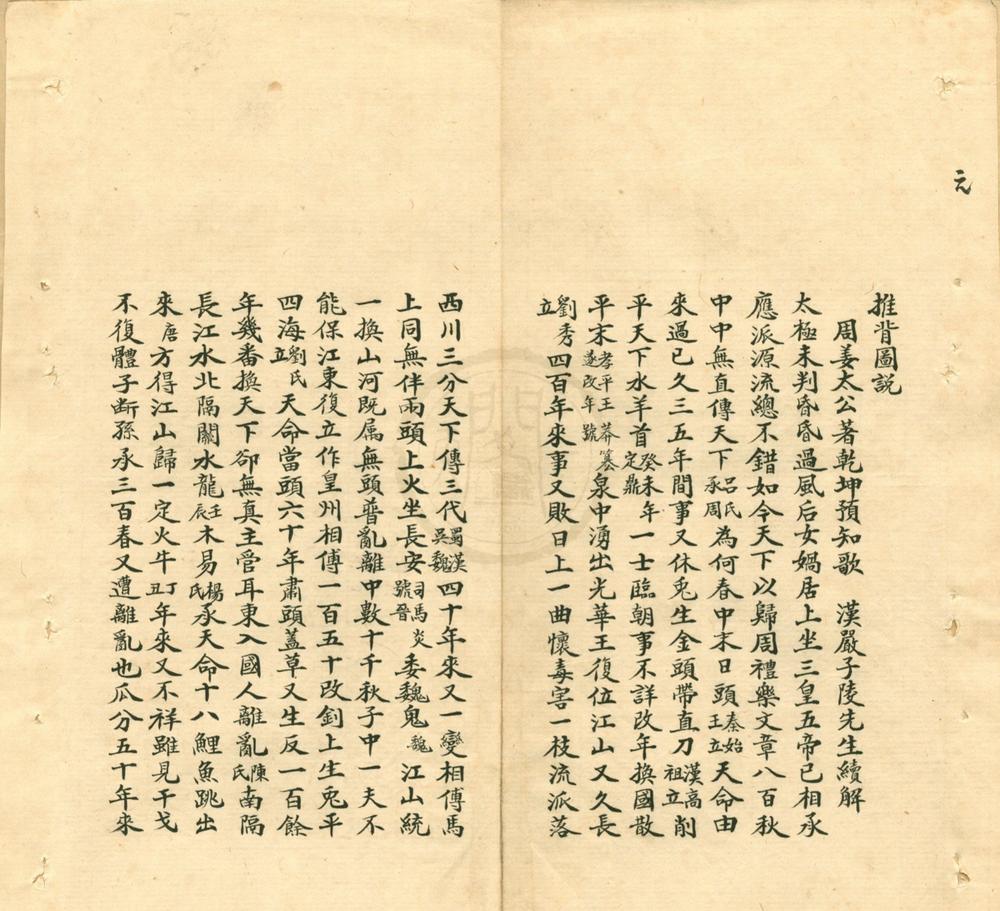 元
推背圖說
周姜太公著乾坤預知歌　漢嚴子陵先生續解
太極未判昏昏過風后女媧居上坐三皇五帝已相承
應派源流總不錯如今天下以歸周禮樂文章八百秋
中中無直傳天下呂氏承周為何春中末日頭秦始王立天命由
來過已久三五年間事又休兎生金頭帶直刀漢高祖立削
平天下水羊首癸未年定鼎一士臨朝事不詳改年換國散
平末孝平王莽篡遂改年號泉中湧出光華王復位江山又久長
劉秀立四百年來事又敗日上一曲懷毒害一枝流派落
西川三分天下傳三代蜀漢吳魏四十年來又一變相傅馬
上同無伴兩頭上火坐長安司馬炎號晉委魏鬼魏江山統
一換山河既属無頭普亂離中數十千秋子中一夫不
能保江東復立作皇州相傅一百五十改釗上生兎平
四海劉氏立天命當頭六十年肅頭蓋草又生反一百餘
年幾番換天下卻無真主管耳東入國人離亂陳氏南隔
長江水北隔關水龍壬辰木易楊氏承天命十八鯉魚跳出
來唐方得江山歸一定火牛丁丑年來又不祥雖見干戈
不復體子断孫承三百春又遭離亂也瓜分五十年來